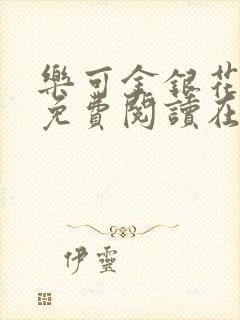 樂可金銀花
免費閱讀在
伊靈